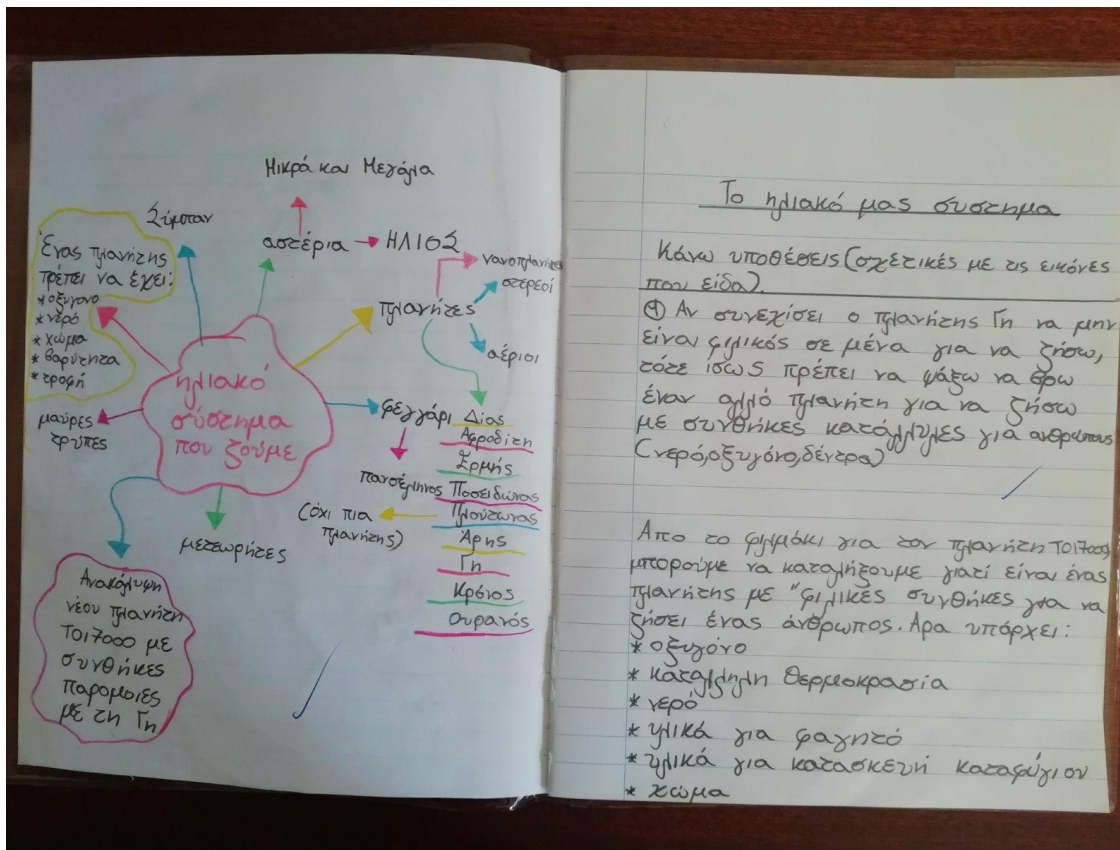 Μικρά και Μεγάλα
Σύμπαν
αστέρια
ΗΛΙΟΣ
Ένας πλανήτης
πρέπει να έχει:
* οξυγονο
* νερό
* χώμα
* βαρύτητα
* τροφή
νανοπλανήτες
στερεοί
πλανήτες
αέριοι
ηλιακό
σύστημα
που ζούμε
μαύρες
τρύπες
φεγγάρι
πανσέληνος
μετεωρήτες
Δίας
Αφροδίτη
Ερμής
Ποσειδώνας
Πλούτωνας
(όχι πια
πλανήτης)
Άρης
Γη
Κρόνος
Ουρανός
Ανακάλυψη
νέου πλανήτη
ΤΟΙ7000 με
συνθήκες
παρομοιες
με τη Γη
Το ηλιακό μας συστημα
Κάνω υποθέσεις (σχετικές με τις εικόνες
που είδα).
① Αν συνεχίσει ο πλανήτης Γη να μην
είναι φιλικός σε μένα για να ζήσω,
τότε ίσως πρέπει να ψάξω να βρω
έναν αλλό πλανήτη για να ζήσω
με συνθήκες κατάλληλες για ανθρώπους
(νερό, οξυγόνο, δέντρα)
Απο το φιλμάκι για τον πλανήτη ΤΟΙ700
μπορούμε να καταλήξουμε γιατί είναι ένας
πλανήτης με "φιλικές συνθήκες για να
ζήσει ένας άνθρωπος. Αρα υπάρχει:
* οξυγόνο
* καταλληλη θερμοκρασία
* νερό
* υλικά για φαγητό
* υλικά για κατασκευή καταφύγιου
* χώμα